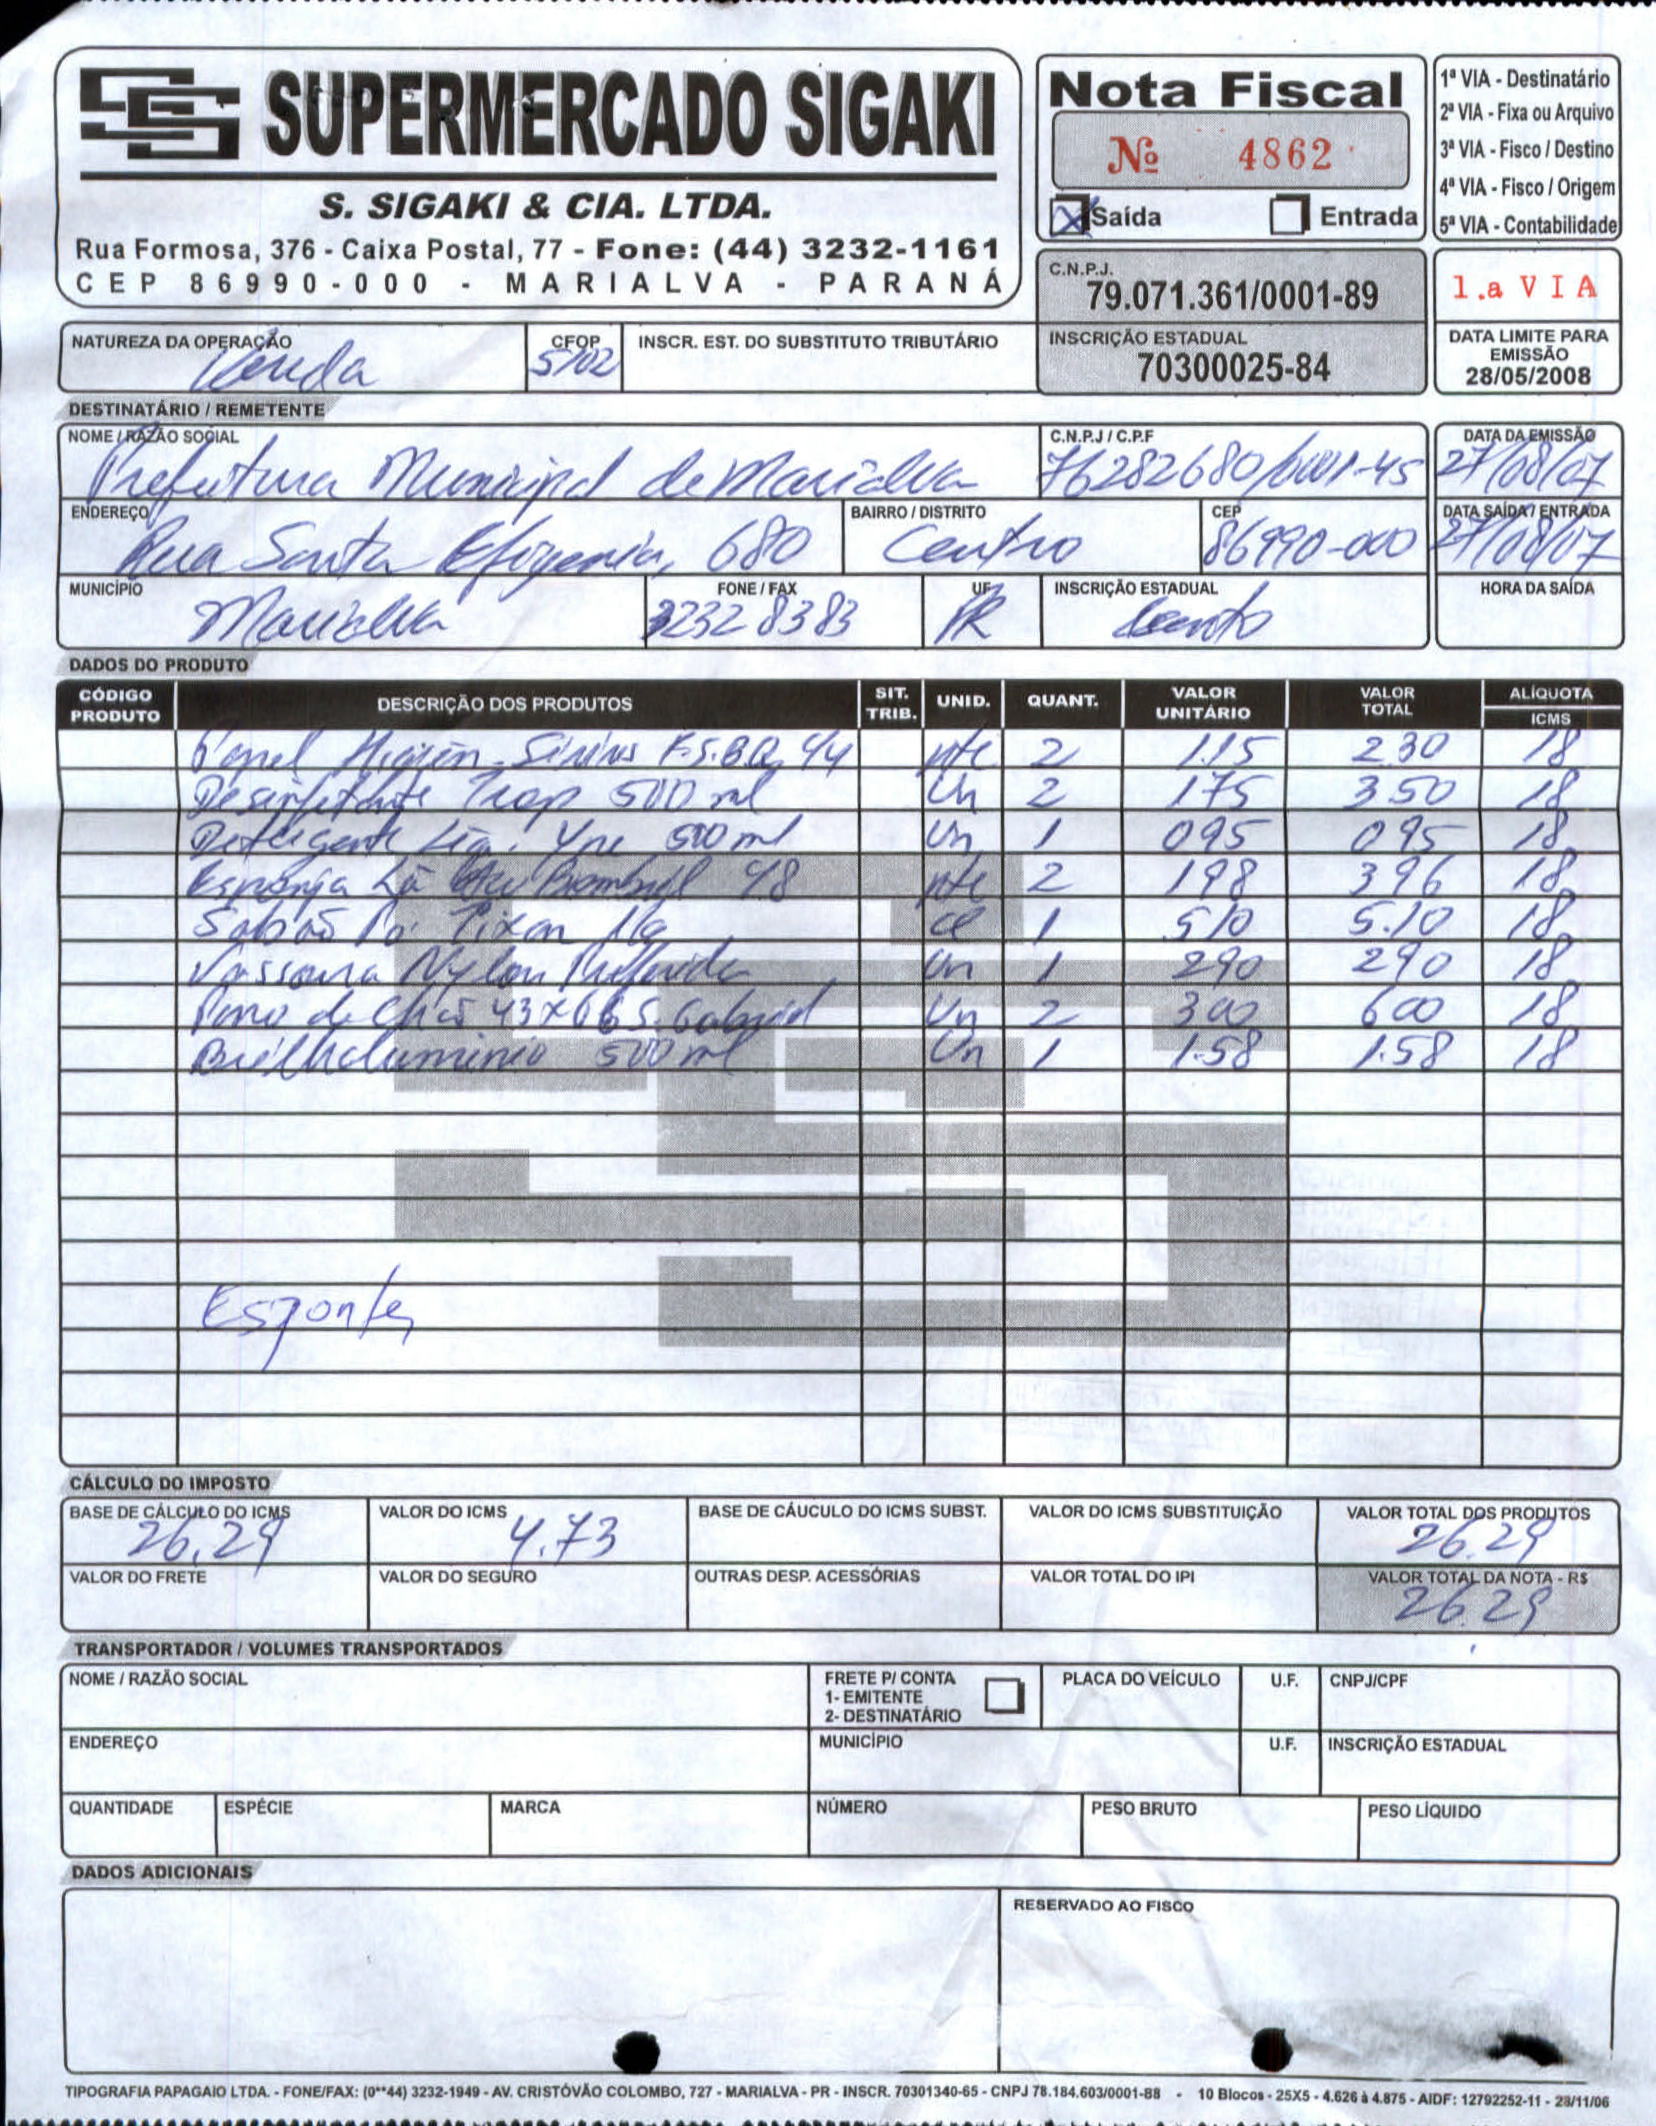 SS SUPERMERCADO SIGAKI
S. SIGAKI & CIA. LTDA.
Rua Formosa, 376 - Caixa Postal, 77 - Fone: (44) 3232-1161
CEP 86990-000 - MARIALVA - PARANÁ
Nota Fiscal
Nº 4862
X Saída Entrada
1ª VIA - Destinatário
2ª VIA - Fixa ou Arquivo
3ª VIA - Fisco / Destino
4ª VIA - Fisco / Origem
5ª VIA - Contabilidade
C.N.P.J.
79.071.361/0001-89
1.a VIA
INSCRIÇÃO ESTADUAL
70300025-84
DATA LIMITE PARA
EMISSÃO
28/05/2008
NATUREZA DA OPERAÇÃO CFOP INSCR. EST. DO SUBSTITUTO TRIBUTÁRIO
Venda 5102
DESTINATÁRIO / REMETENTE
NOME / RAZÃO SOCIAL C.N.P.J / C.P.F DATA DA EMISSÃO
Prefeitura Municipal de Marialva 76282680/0001-45 27/08/07
ENDEREÇO BAIRRO / DISTRITO CEP DATA SAÍDA / ENTRADA
Rua Santa Efigenia, 680 Centro 86990-000 27/08/07
MUNICÍPIO FONE / FAX UF INSCRIÇÃO ESTADUAL HORA DA SAÍDA
Marialva 3232 8383 PR
DADOS DO PRODUTO
CÓDIGO PRODUTO DESCRIÇÃO DOS PRODUTOS SIT. TRIB. UNID. QUANT. VALOR UNITÁRIO VALOR TOTAL ALÍQUOTA ICMS
Papel Higien. Sirius F.S.B.Q. 4/4 pte 2 1.15 2.30 18
Desinfetante Trop 500 ml Un 2 175 350 18
Detergente Liq. Ype 500 ml Un 1 095 095 18
Esponja Lã Bombril 98 pte 2 198 396 18
Sabão Pó Tixan 1kg 1 510 5.10 18
Vassoura Nylon Preferida Un 1 290 290 18
Pano de Chão 43x66 S. Gabriel Un 2 300 600 18
Brilhaluminio 500 ml Un 1 1.58 1.58 18
CÁLCULO DO IMPOSTO
BASE DE CÁLCULO DO ICMS VALOR DO ICMS BASE DE CÁUCULO DO ICMS SUBST. VALOR DO ICMS SUBSTITUIÇÃO VALOR TOTAL DOS PRODUTOS
26,29 4.73 26.29
VALOR DO FRETE VALOR DO SEGURO OUTRAS DESP. ACESSÓRIAS VALOR TOTAL DO IPI VALOR TOTAL DA NOTA - R$
26.29
TRANSPORTADOR / VOLUMES TRANSPORTADOS
NOME / RAZÃO SOCIAL FRETE P/ CONTA PLACA DO VEÍCULO U.F. CNPJ/CPF
1- EMITENTE
2- DESTINATÁRIO
ENDEREÇO MUNICÍPIO U.F. INSCRIÇÃO ESTADUAL
QUANTIDADE ESPÉCIE MARCA NÚMERO PESO BRUTO PESO LÍQUIDO
DADOS ADICIONAIS
RESERVADO AO FISCO
TIPOGRAFIA PAPAGAIO LTDA. - FONE/FAX: (0**44) 3232-1949 - AV. CRISTÓVÃO COLOMBO, 727 - MARIALVA - PR - INSCR. 70301340-65 - CNPJ 78.184.603/0001-88 - 10 Blocos - 25X5 - 4.626 à 4.875 - AIDF: 12792252-11 - 28/11/06